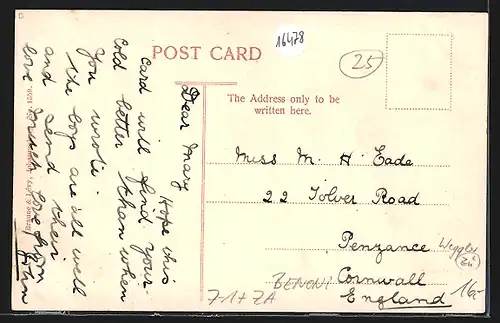 16478
POST CARD
25
The Address only to be
written here.
Dear Mary
Hope this
card will find your
cold better than when
You wrote.
the boys are all well
and send their
love much love from
John
Miss M. H Eade
22 Tolver Road
Penzance
Cornwall
England
BENONI
16-